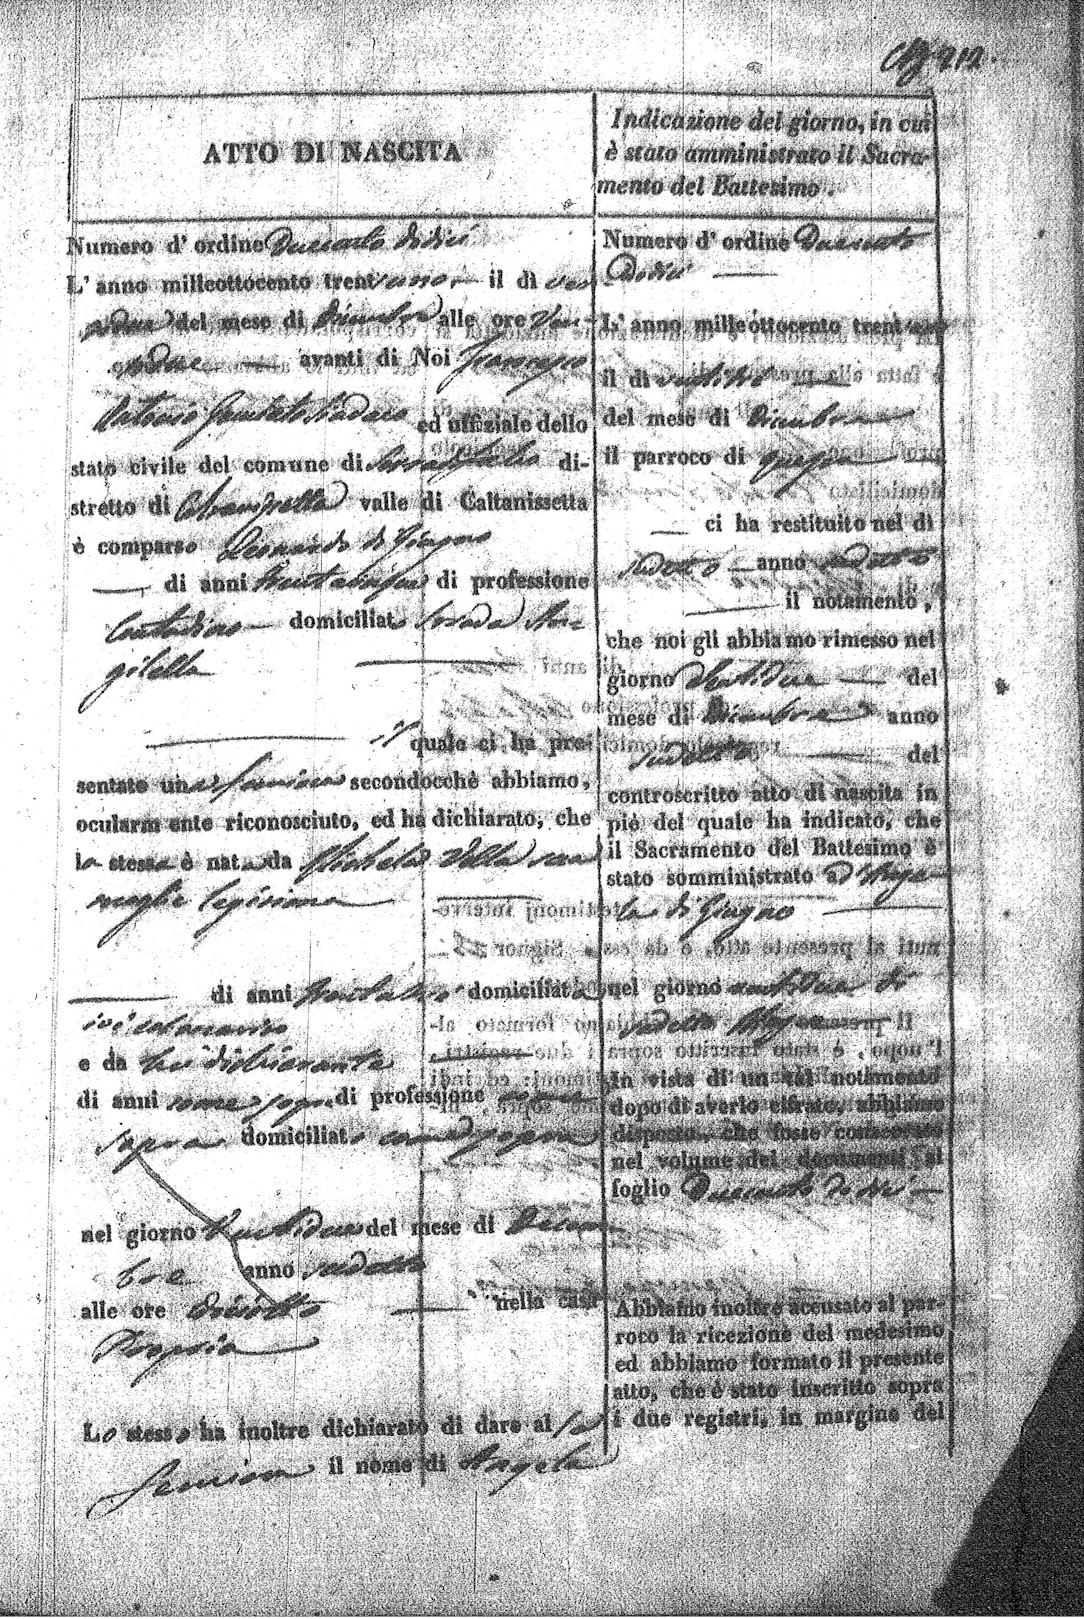 212.
ATTO DI NASCITA
Numero d' ordine Duecento dodici
L' anno milleottocento trent uno il dì ven
tidue del mese di Dicembre alle ore ven-
tidue avanti di Noi Francesco
Antonio Sindaco ed uffiziale dello
stato civile del comune di Serradifalco di-
stretto di Caltanissetta valle di Caltanissetta
è comparso Leonardo di Giugno
di anni di professione
Contadino domiciliato Strada
il quale ci ha pre-
sentato una femina secondocchè abbiamo,
ocularmente riconosciuto, ed ha dichiarato, che
la stessa è nata da Michela Vella sua
moglie legitima
di anni domiciliata
e da lui dichiarante
di anni come sopra di professione come
sopra domiciliato come sopra
nel giorno Ventidue del mese di Decem
bre anno sudetto
alle ore dieciotto nella casa
Propria
Lo stesso ha inoltre dichiarato di dare al la
femina il nome di Angela
Indicazione del giorno, in cui
è stato amministrato il Sacra-
mento del Battesimo.
Numero d' ordine Duecento
Dodici
L' anno milleottocento trent uno
il dì
del mese di Dicembre
il parroco di questa
ci ha restituito nel dì
sudetto anno sudetto
il notamento,
che noi gli abbiamo rimesso nel
giorno Ventidue del
mese di Dicembre anno
sudetto del
controscritto atto di nascita in
piè del quale ha indicato, che
il Sacramento del Battesimo è
stato somministrato ad Ange
la di Giugno
nel giorno ventidue di
sudetto
In vista di un tal notamento
dopo di averlo cifrato, abbiamo
disposto, che fosse conservato
nel volume dei documenti al
foglio Duecento dodici
Abbiamo inoltre accusato al par-
roco la ricezione del medesimo
ed abbiamo formato il presente
atto, che è stato inscritto sopra
i due registri, in margine del